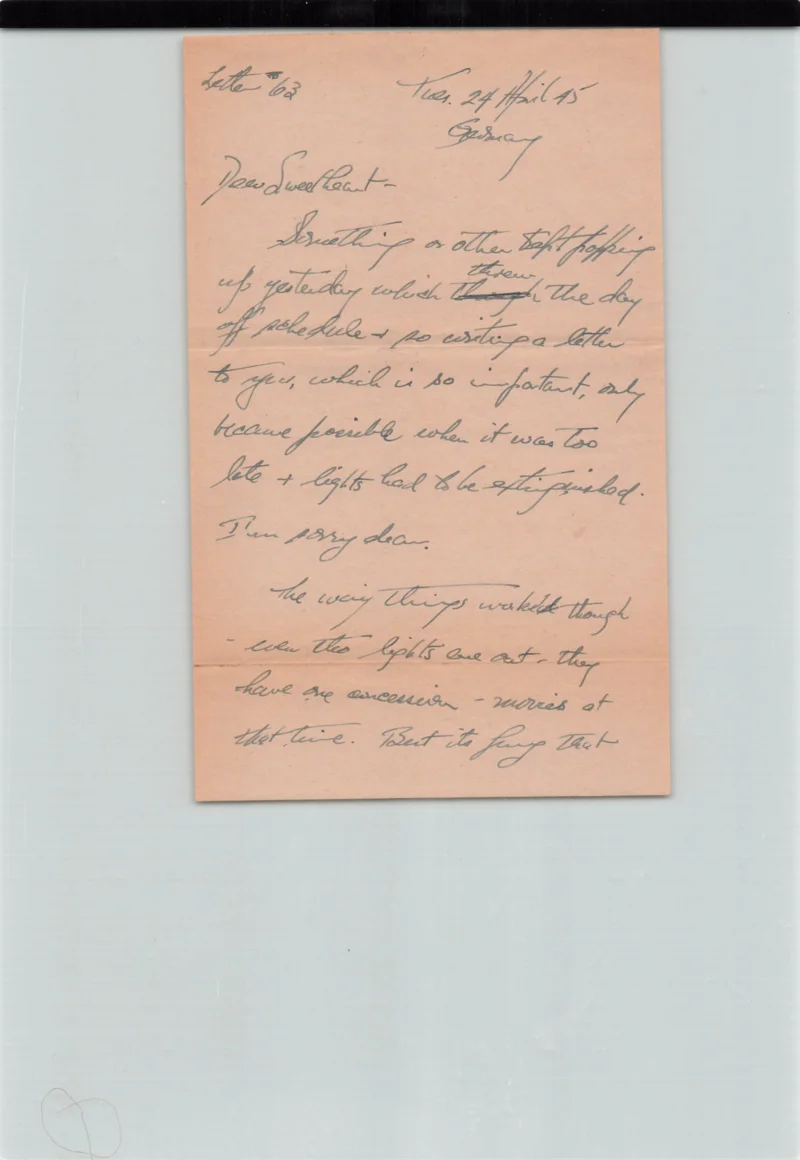 Letter #63
Tues. 24 April 45
Germany
Dear Sweetheart -
Something or other kept popping
up yesterday which threw the day
off schedule + so writing a letter
to you, which is so important, only
became possible when it was too
late + lights had to be extinguished.
I'm sorry dear.
The way things worked though
- even tho lights are out - they
have one concession - movies at
that time. But its funny that